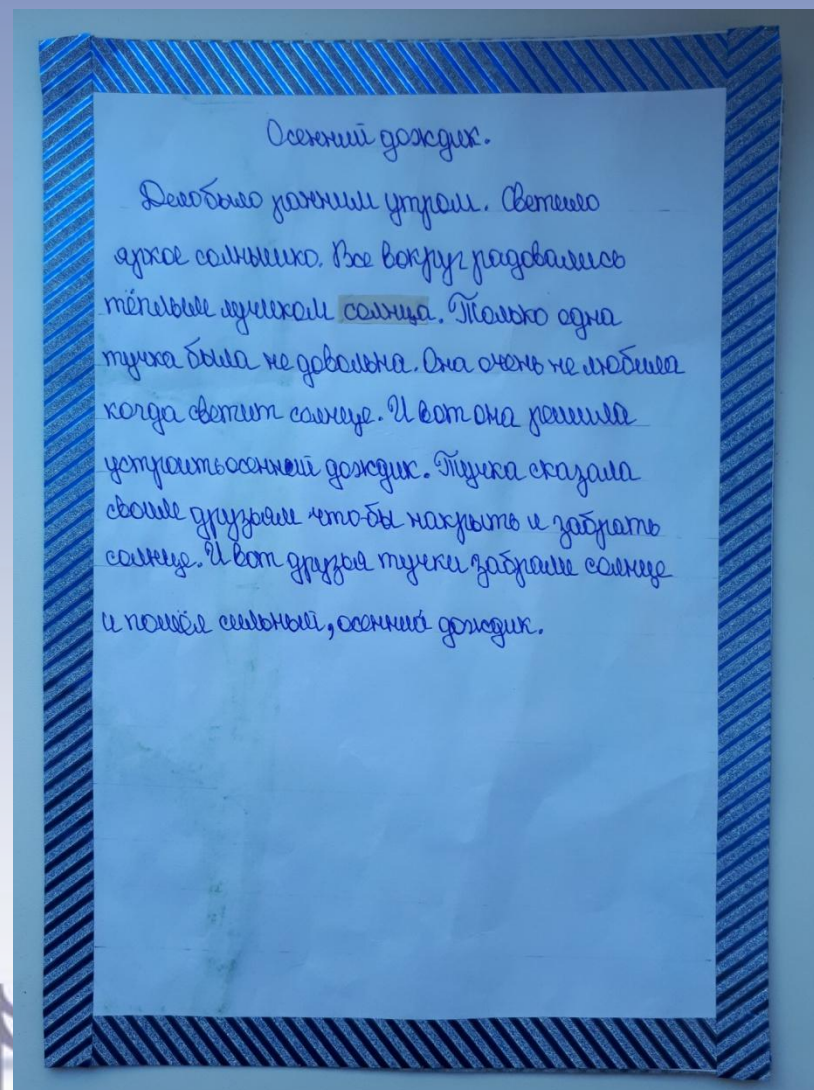 Осенний дождик.
Дело было ранним утром. Светило
яркое солнышко. Все вокруг радовались
тёплым лучиком солнца. Только одна
тучка была не довольна. Она очень не любила
когда светит солнце. И вот она решила
устроить осенний дождик. Тучка сказала
своим друзьям что-бы накрыть и забрать
солнце. И вот друзья тучки забрали солнце
и пошёл сильный, осенний дождик.